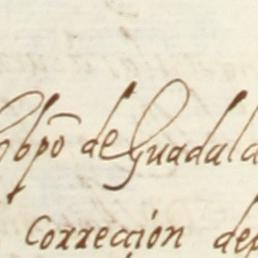 Obpõ de Guadala
Correccion de